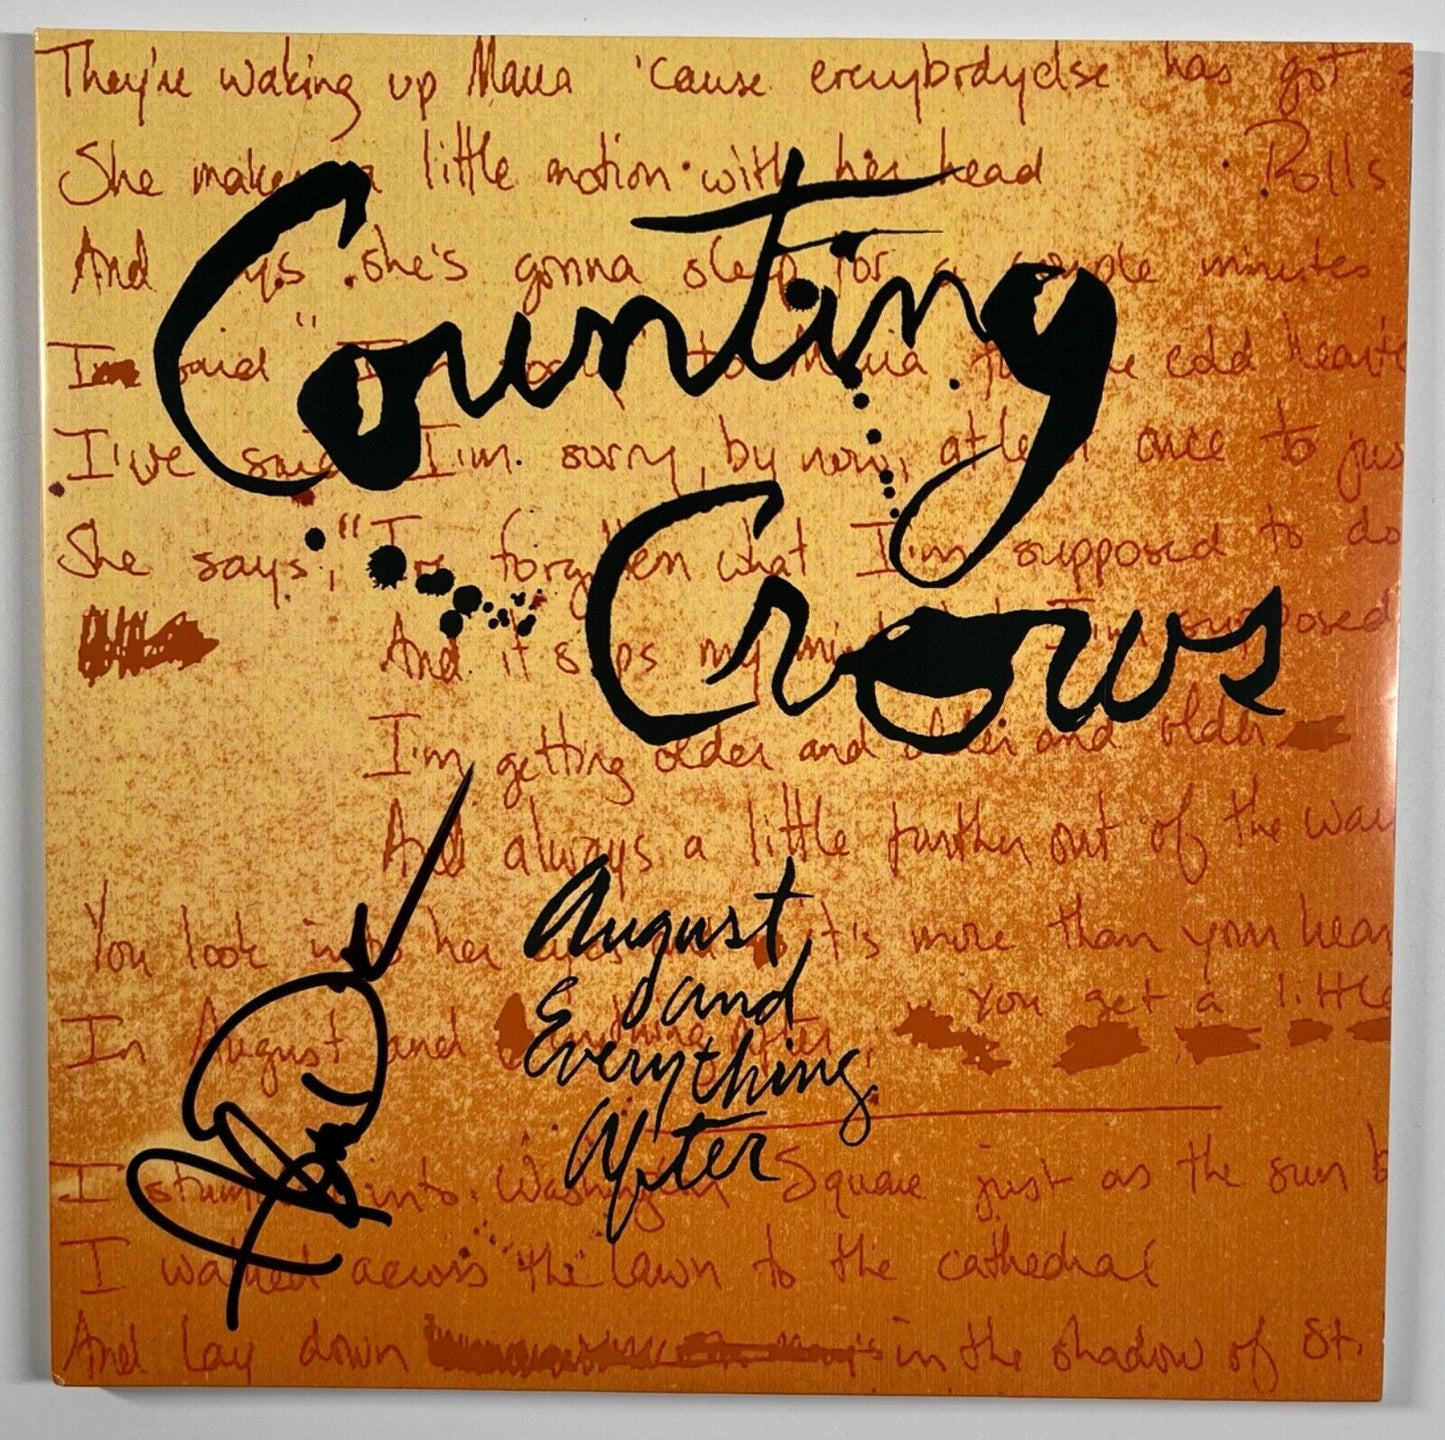 They're waking up Maria 'cause everybodyelse has got
She makes a little motion with her head Rolls
And says she's gonna sleep for a couple minutes
I said "I'm to Maria cold
I've said I'm sorry, by now, at least once to jus
She says, "I've forgotten what I'm supposed to do
And it slips my mind what I'm supposed
I'm getting older and older and older
And always a little further out of the way
You look into her it's more than your hear
You get a little
In August and Everything After,
I into Washington Square just as the sun b
I walked across the lawn to the cathedral
And lay down in the shadow of St.
Counting
Crows
August
and
Everything
After